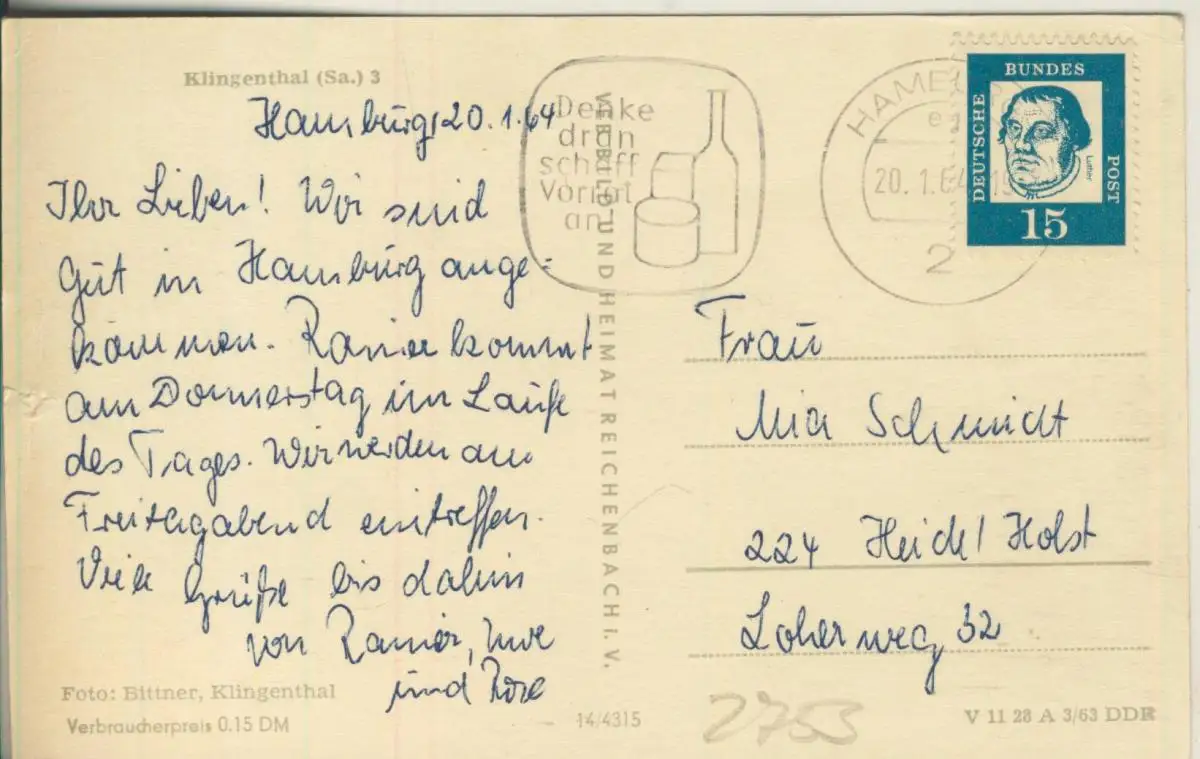 Klingenthal (Sa.) 3
Hamburg, 20. 1. 64
Ihr Lieben! Wir sind
gut in Hamburg ange-
kommen. Rainer kommt
am Donnerstag im Laufe
des Tages. Wir werden am
Freitagabend eintreffen.
Viele Grüße bis dahin
von Rainer, Uwe
und Rose
Foto: Bittner, Klingenthal
Verbraucherpreis 0.15 DM
VERBILD UND HEIMAT REICHENBACH I. V.
14/4315
Denke
dran
schaff
Vorrat
an
HAMBURG
20. 1. 64
2
DEUTSCHE
BUNDES
POST
Luther
15
Frau
Mia Schmidt
224 Heide / Holst
Loher weg 32
2753
V 11 28 A 3/63 DDR